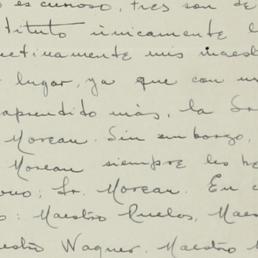 es curioso, tres son de
tituto únicamente l
ctivamente mis maest
lugar, ya que con u
aprendido más, la Sr
Morean. Sin embargo,
Morean siempre les h
Sr. Morean. En c
: Maestro Ruelos, Maes
estro Wagner, Maestro